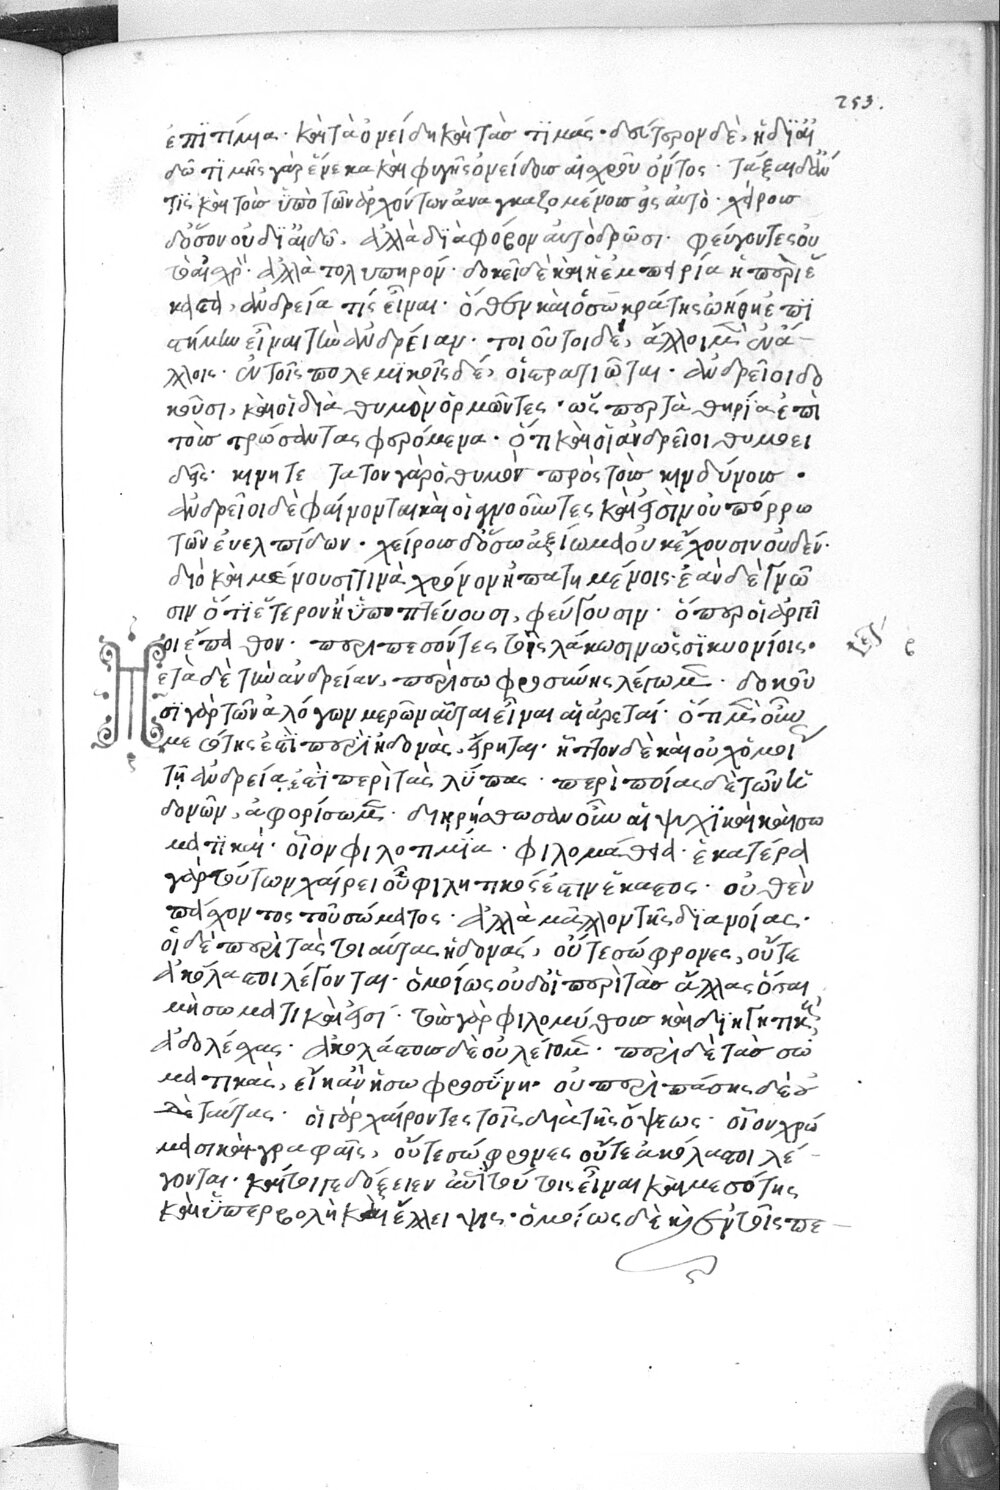 253.
ἐπιτίμια· καὶ τὰ ὀνείδη καὶ τὰς τιμάς· δεύτερον δὲ, ἡ δι' αἰ
δῶ τιμῆς γὰρ ἕνεκα καὶ φυγῆς ὀνείδους αἰσχροῦ ὄντος· τάξαι δ' ἄν
τις καὶ τοὺς ὑπὸ τῶν ἀρχόντων ἀναγκαζομένους ἐς αὐτό· χείρους
δ' ὅσον οὐ δι' αἰδῶ, ἀλλὰ διὰ φόβον αὐτὸ δρῶσι· φεύγοντες οὐ
τὸ αἰσχρὸν· ἀλλὰ τὸ λυπηρόν· δοκεῖ δὲ καὶ ἡ ἐμπειρία ἡ περὶ ἕ
καστα, ἀνδρεία τίς εἶναι· ὅθεν καὶ ὁ σωκράτης ὠήθη ἐπι
στήμην εἶναι τὴν ἀνδρείαν· τοιοῦτοι δὲ, ἄλλοι μὲν ἐν ἄ-
λλοις· ἐν τοῖς πολεμικοῖς δέ, οἱ στρατιῶται· ἀνδρεῖοι δο
κοῦσι, καὶ οἱ διὰ θυμὸν ὁρμῶντες· ὥσπερ τὰ θηρία ἐπὶ
τοὺς τρώσαντας φερόμενα· ὅτι καὶ οἱ ἀνδρεῖοι θυμοει
δῆς· κινητικώτατον γὰρ ὁ θυμὸν πρὸς τοὺς κινδύνους·
ἀνδρεῖοι δὲ φαίνονται καὶ οἱ ἀγνοοῦντες καὶ εἰσὶν οὐ πόρρω
τῶν εὐελπίδων· χείρους δ' ὅσω ἀξίωμα οὐκ ἔχουσιν οὐδέν·
διὸ καὶ μένουσί τινα χρόνον ἠπατημένοις· ἐὰν δὲ γνῶ
σιν ὅτι ἕτερον ἢ ὑποπτεύουσι, φεύγουσιν· ὅπερ οἱ ἀργεῖ
οι ἔπαθον· περιπεσόντες τοῖς λάκωσιν ὡς σικυωνίοις·
Μετὰ δὲ τὴν ἀνδρείαν, περὶ σωφροσύνης λέγωμεν· δοκοῦ
σι γὰρ τῶν ἀλόγων μερῶν αὗται εἶναι αἱ ἀρεταί· ὅτι μὲν οὖν
μεσότης ἐστὶ περὶ ἡδονὰς, εἴρηται· ἧττον δὲ καὶ οὐχ ὁμοί
τῇ ἀνδρεία ἐστὶ περὶ τὰς λύπας· περὶ ποίας δὲ τῶν ἡ
δονῶν, ἀφορίσωμεν· διηρήσθωσαν οὖν αἱ ψυχικαὶ καὶ σω
ματικαὶ· οἷον φιλοτιμία· φιλομάθεια· ἑκατέρα
γὰρ τούτων χαίρει οὗ φιλητικός ἐστιν ἕκαστος· οὐθὲν
πάσχοντος τοῦ σώματος· ἀλλὰ μᾶλλον τῆς διανοίας·
οἱ δὲ περὶ τὰς τοιαύτας ἡδονάς, οὔτε σώφρονες, οὔτε
ἀκόλαστοι λέγονται· ὁμοίως οὐδ' οἱ περὶ τὰς ἄλλας ὅσαι
μὴ σωματικαὶ εἰσί· τοὺς γὰρ φιλομύθους καὶ διηγητικοὺς
ἀδολέσχας· ἀκολάστους δὲ οὐ λέγομεν· περὶ δὲ τὰς σω
ματικὰς, εἴη ἂν ἡ σωφροσύνη· οὐ περὶ πάσας δὲ οὐ
δὲ ταύτας· οἱ γὰρ χαίροντες τοῖς διὰ τῆς ὄψεως· οἷον χρώ
μασι καὶ γραφαῖς, οὔτε σώφρονες οὔτε ἀκόλαστοι λέ-
γονται· καί τοι γε δόξειεν ἂν τούτοις εἶναι καὶ μεσότης
καὶ ὑπερβολὴ καὶ ἔλλειψις· ὁμοίως δὲ κἂν τοῖς πε